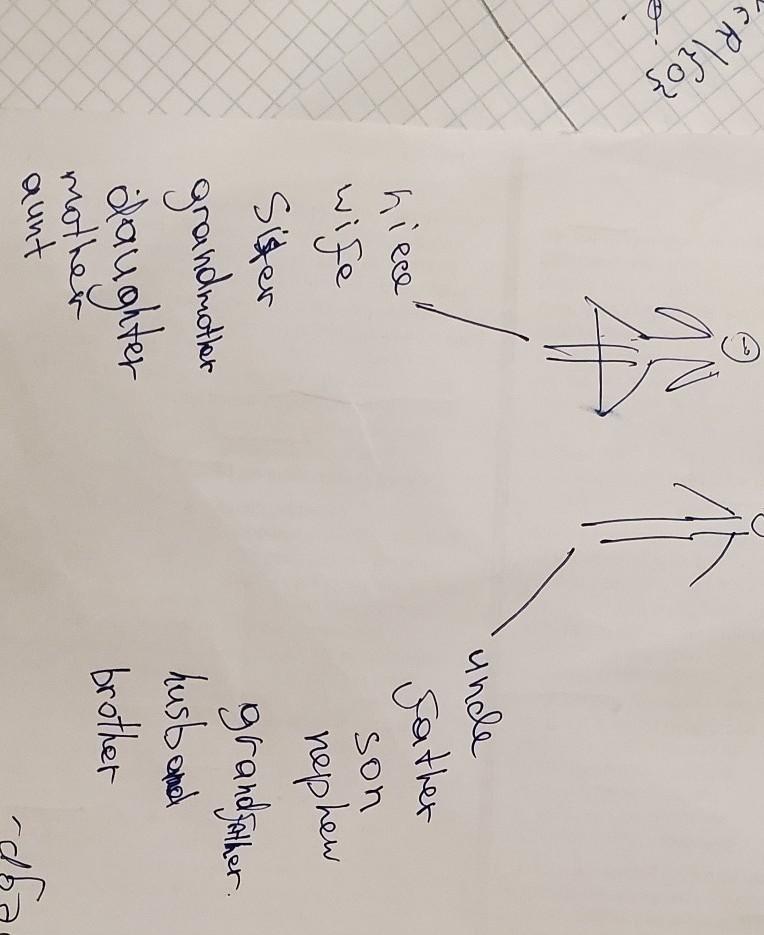 niece
wife
sister
grandmother
daughter
mother
aunt
uncle
father
son
nephew
grandfather.
husband
brother